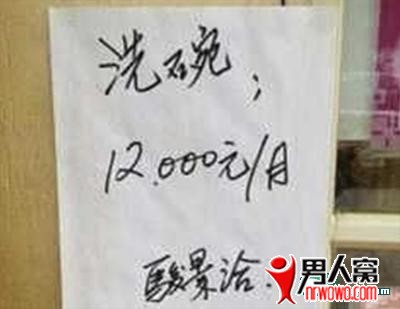 洗碗;
12.000元/月
駿景洽.
男人窝
nrwowo.com